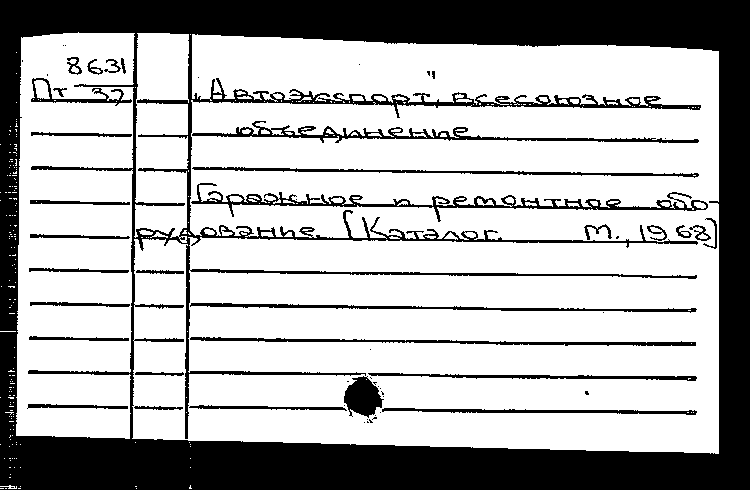 8631
Пт 37
„Автоэкспорт", всесоюзное
объединение.
Гаражное и ремонтное обо-
рудование. [Каталог. М., 1968]